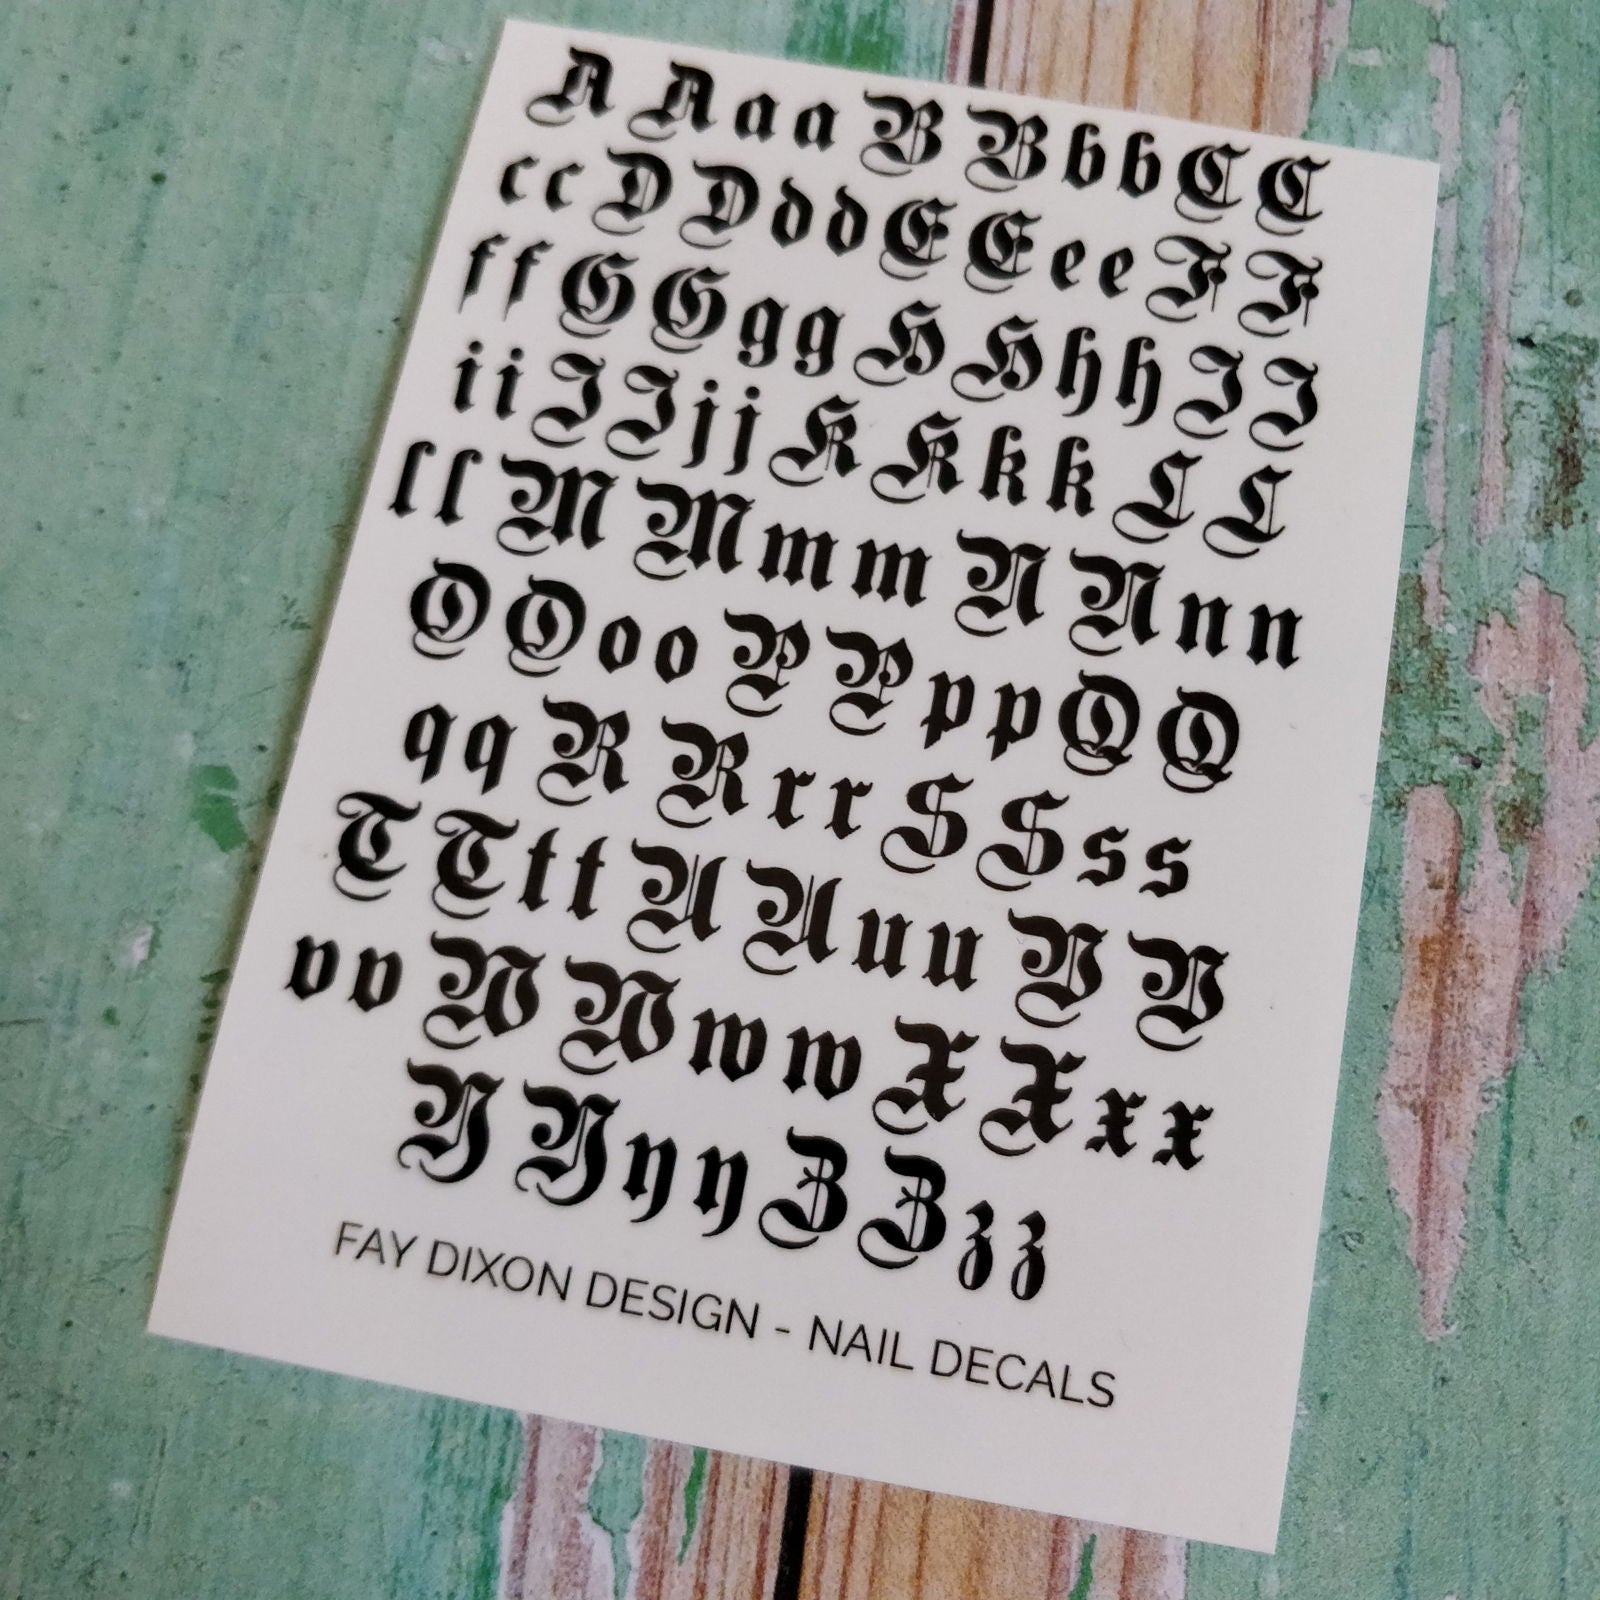 A A a a B B b b C C
c c D D d d E E e e F F
f f G G g g H H h h I I
i i J J j j K K k k L L
l l M M m m N N n n
O O o o P P p p Q Q
q q R R r r S S s s
T T t t U U u u V V
v v W W w w X X x x
Y Y y y Z Z z z
FAY DIXON DESIGN - NAIL DECALS